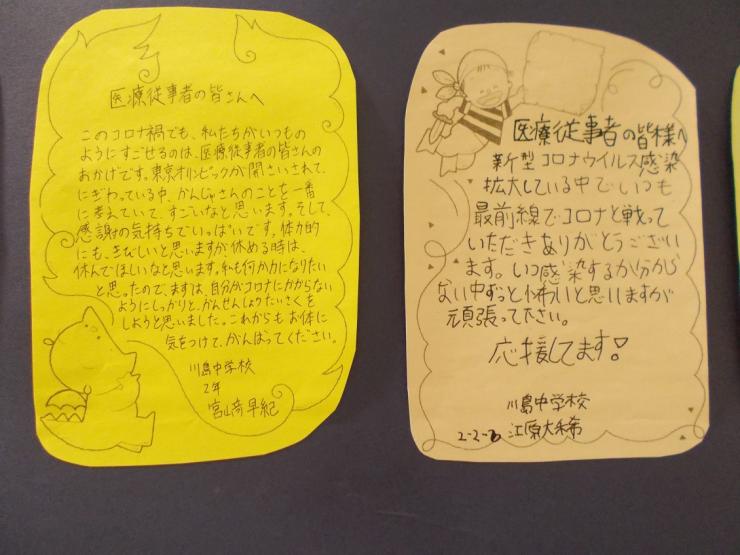 医療従事者の皆さんへ
このコロナ禍でも、私たちがいつもの
ようにすごせるのは、医療従事者の皆さんの
おかげです。東京オリンピックが開さいされて、
にぎわっている中、かんじゃさんのことを一番
に考えていて、すごいなと思います。そして、
感謝の気持ちでいっぱいです。体力的
にも、きびしいと思いますが休める時は、
休んでほしいなと思います。私も何か力になりたい
と思ったので、まずは、自分がコロナにかからない
ようにしっかりと、かんせんしょうたいさくを
しようと思いました。これからもお体に
気をつけて、がんばってください。
川島中学校
2年
宮山奇早紀
医療従事者の皆様へ
新型コロナウイルス感染
拡大している中でいつも
最前線でコロナと戦って
いただきありがとうござい
ます。いつ感染するか分から
ない中ずっとこわいと思いますが
頑張って下さい。
応援してます!
川島中学校
2-2-6 江原大稀